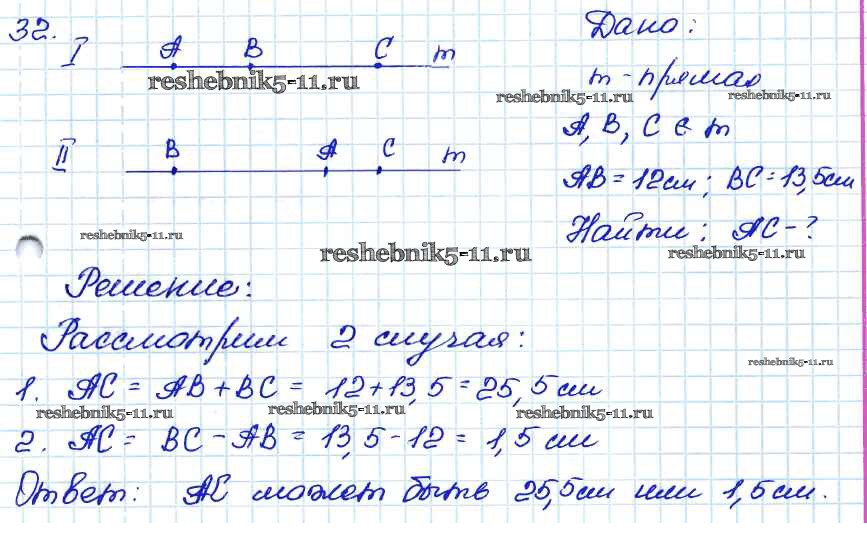 32.
I A B C m
reshebnik5-11.ru
II B A C m
Дано:
m - прямая
reshebnik5-11.ru reshebnik5-11.ru
A, B, C ∈ m
AB = 12см; BC = 13,5см
Найти: AC - ?
reshebnik5-11.ru reshebnik5-11.ru reshebnik5-11.ru
Решение:
Рассмотрим 2 случая:
reshebnik5-11.ru
1. AC = AB + BC = 12 + 13,5 = 25,5 см
reshebnik5-11.ru reshebnik5-11.ru reshebnik5-11.ru
2. AC = BC - AB = 13,5 - 12 = 1,5 см
Ответ: AC может быть 25,5см или 1,5 см.